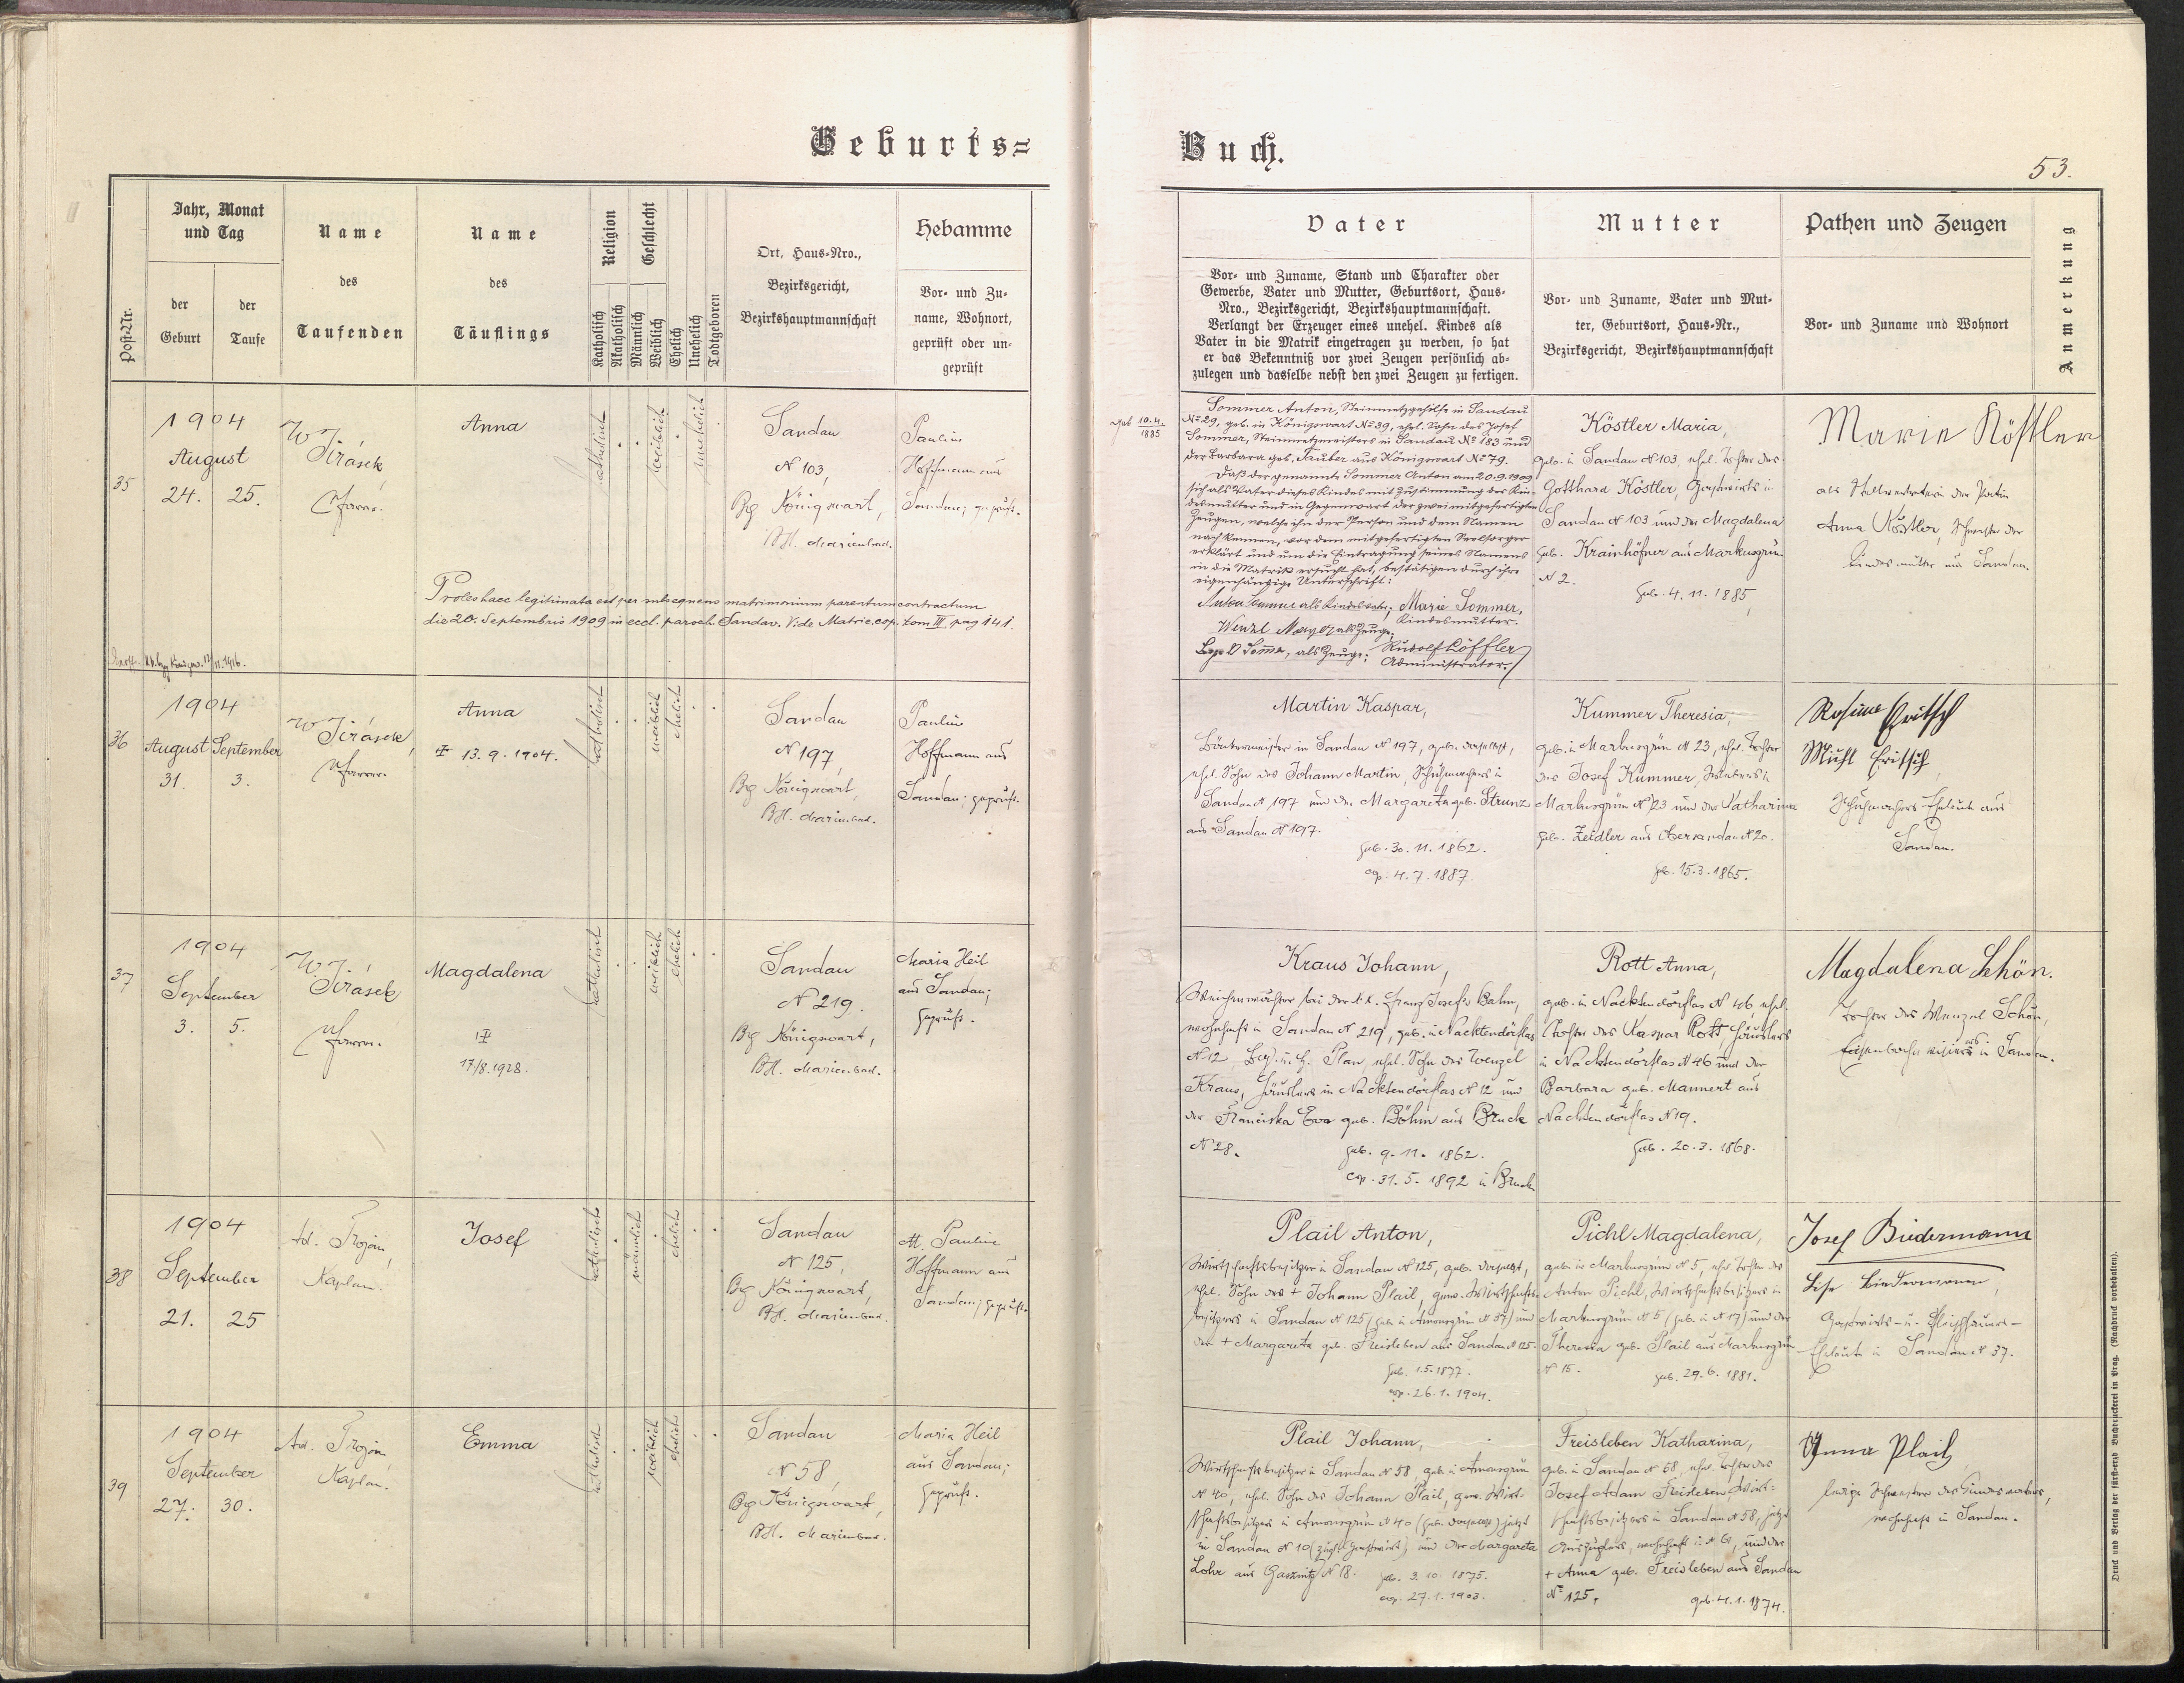 Geburts=
Buch.
53.
Post-Nr.
Jahr, Monat
und Tag
der
Geburt
der
Taufe
Name
des
Taufenden
Name
des
Täuflings
Religion
Katholisch
Akatholisch
Geschlecht
Männlich
Weiblich
Ehelich
Unehelich
Todtgeboren
Ort, Haus-Nro.,
Bezirksgericht,
Bezirkshauptmannschaft
Hebamme
Vor- und Zu-
name, Wohnort,
geprüft oder un-
geprüft
Vater
Vor- und Zuname, Stand und Charakter oder
Gewerbe, Vater und Mutter, Geburtsort, Haus-
Nro., Bezirksgericht, Bezirkshauptmannschaft.
Verlangt der Erzeuger eines unehel. Kindes als
Vater in die Matrik eingetragen zu werden, so hat
er das Bekenntniß vor zwei Zeugen persönlich ab-
zulegen und dasselbe nebst den zwei Zeugen zu fertigen.
Mutter
Vor- und Zuname, Vater und Mut-
ter, Geburtsort, Haus-Nr.,
Bezirksgericht, Bezirkshauptmannschaft
Pathen und Zeugen
Vor- und Zuname und Wohnort
Anmerkung
35
1904
August
24. 25.
W Jirásek
Pfarrer.
Anna
katholisch
weiblich
unehelich
Sandau
N 103,
Bg Königswart,
BH. Marienbad.
Pauline
Hoffmann aus
Sandau; geprüft.
Proles haec legitimata est per subsequens matrimonium parentum contractum
die 20. Septembris 1909 in eccl. paroch. Sandau. Vide Matric. cop. tom III pag 141.
geb 10.4.
1885
Sommer Anton, Steinmetzgehilfe in Sandau
No 29, geb. in Königswart No 39, ehel. Sohn des Josef
Sommer, Steinmetzmeisters in Sandau No 183 und
der Barbara geb. Tauber aus Königswart No 79.
Daß der genannte Sommer Anton am 20.9.1909
sich als Vater dieses Kindes mit Zustimmung der Kin-
desmutter und in Gegenwart der zwei mitgefertigten
Zeugen, welche ihn der Person und dem Namen
nach kennen, vor dem mitgefertigten Seelsorger
erklärt und um die Eintragung seines Namens
in die Matrik ersucht hat, bestätigen durch ihre
eigenhändige Unterschrift:
Anton Sommer als Kindesvater; Marie Sommer,
Kindesmutter.
Wenzl als Zeuge;
als Zeuge; Rudolf Löffler
Administrator.
Köstler Maria,
geb. in Sandau N 103, ehel. Tochter des
Gotthard Köstler, Gastwirts in
Sandau N 103 und der Magdalena
geb. Krainhöfner aus Markusgrün
N 2.
geb. 4.11.1885,
Marie Köstler
als Stellvertreterin der Patin
Anna Köstler, Schwester der
Kindesmutter aus Sandau.
36
1904
August September
31. 3.
W Jirásek,
Pfarrer.
Anna
13.9.1904.
katholisch
weiblich
ehelich
Sandau
N 197,
Bg Königswart,
BH. Marienbad.
Pauline
Hoffmann aus
Sandau; geprüft.
Martin Kaspar,
meister in Sandau N 197, geb. daselbst,
ehel. Sohn des Johann Martin, Schuhmachers in
Sandau N 197 und der Margareta geb. Strunz
aus Sandau N 197.
geb. 30.11.1862.
cop. 4.7.1887.
Kummer Theresia,
geb. in Markusgrün N 23, ehel. Tochter
des Josef Kummer, in
Markusgrün N 23 und der Katharina
geb. Zeidler aus Obersandau N 20.
geb. 15.3.1865.
Rosina Fritsch
Michl Fritsch,
Schuhmachers-Eheleute aus
Sandau.
37
1904
September
3. 5.
W. Jirásek
Pfarrer.
Magdalena
17/8.1928.
katholisch
weiblich
ehelich
Sandau
N 219.
Bg Königswart,
BH. Marienbad.
Maria Heil
aus Sandau;
geprüft.
Kraus Johann,
Weichenwächter bei der k.k. Franz Josefs Bahn,
wohnhaft in Sandau N 219, geb. in Nacktendörflas
N 12, Bez. u. H. Plan, ehel. Sohn des Wenzel
Kraus, Häuslers in Nacktendörflas N 12 und
der Franciska Eva geb. Böhm aus Bruck
N 28.
geb. 9.11.1862.
cop. 31.5.1892 in Bruck
Rott Anna,
geb. in Nacktendörflas N 46, ehel.
Tochter des Kaspar Rott, Häuslers
in Nacktendörflas N 46 und der
Barbara geb. Mannert aus
Nacktendörflas N 19.
geb. 20.3.1868.
Magdalena Schön.
Tochter des Wenzel Schön,
in Sandau.
38
1904
September
21. 25
Ad. Trojan,
Kaplan.
Josef
katholisch
männlich
ehelich
Sandau
N 125,
Bg Königswart,
BH. Marienbad.
M. Pauline
Hoffmann aus
Sandau; geprüft.
Plail Anton,
Wirtschaftsbesitzer in Sandau N 125, geb. daselbst,
ehel. Sohn des + Johann Plail, gew. Wirtschafts-
besitzers in Sandau N 125 (geb. in Amonsgrün N 57) und
der + Margareta geb. Freisleben aus Sandau N 125.
geb. 1.5.1877.
cop. 26.1.1904.
Pichl Magdalena,
geb. in Markusgrün N 5, ehel. Tochter des
Anton Pichl, Wirtschaftsbesitzers in
Markusgrün N 5 (geb. in N 17) und der
Theresia geb. Plail aus Markusgrün
N 15.
geb. 29.6.1881.
Josef Biedermann
Biedermann,
Gastwirts- u. Fleischhauers-
Eheleute in Sandau N 37.
39
1904
September
27. 30.
Ad. Trojan,
Kaplan.
Emma
katholisch
weiblich
ehelich
Sandau
N 58,
Bg Königswart,
BH. Marienbad.
Maria Heil
aus Sandau;
geprüft.
Plail Johann,
Wirtschaftsbesitzer in Sandau N 58, geb. in Amonsgrün
N 40, ehel. Sohn des Johann Plail, gew. Wirt-
schaftsbesitzers in Amonsgrün N 40 (geb. daselbst) jetzt
in Sandau N 10 und der Margareta
Lohr aus Gassnitz N 18. geb. 3.10.1875.
cop. 27.1.1903.
Freisleben Katharina,
geb. in Sandau N 58, ehel. Tochter des
Josef Adam Freisleben, Wirt-
schaftsbesitzers in Sandau N 58, jetzt
Auszüglers, wohnhaft in N 61, und der
+ Anna geb. Freisleben aus Sandau
No 125.
geb. 4.1.1874.
Anna Plail,
ledige Schwester des Kindesvaters,
wohnhaft in Sandau.
Druck und Verlag der fürst-erzb. Buchdruckerei in Prag. (Nachdruck vorbehalten).